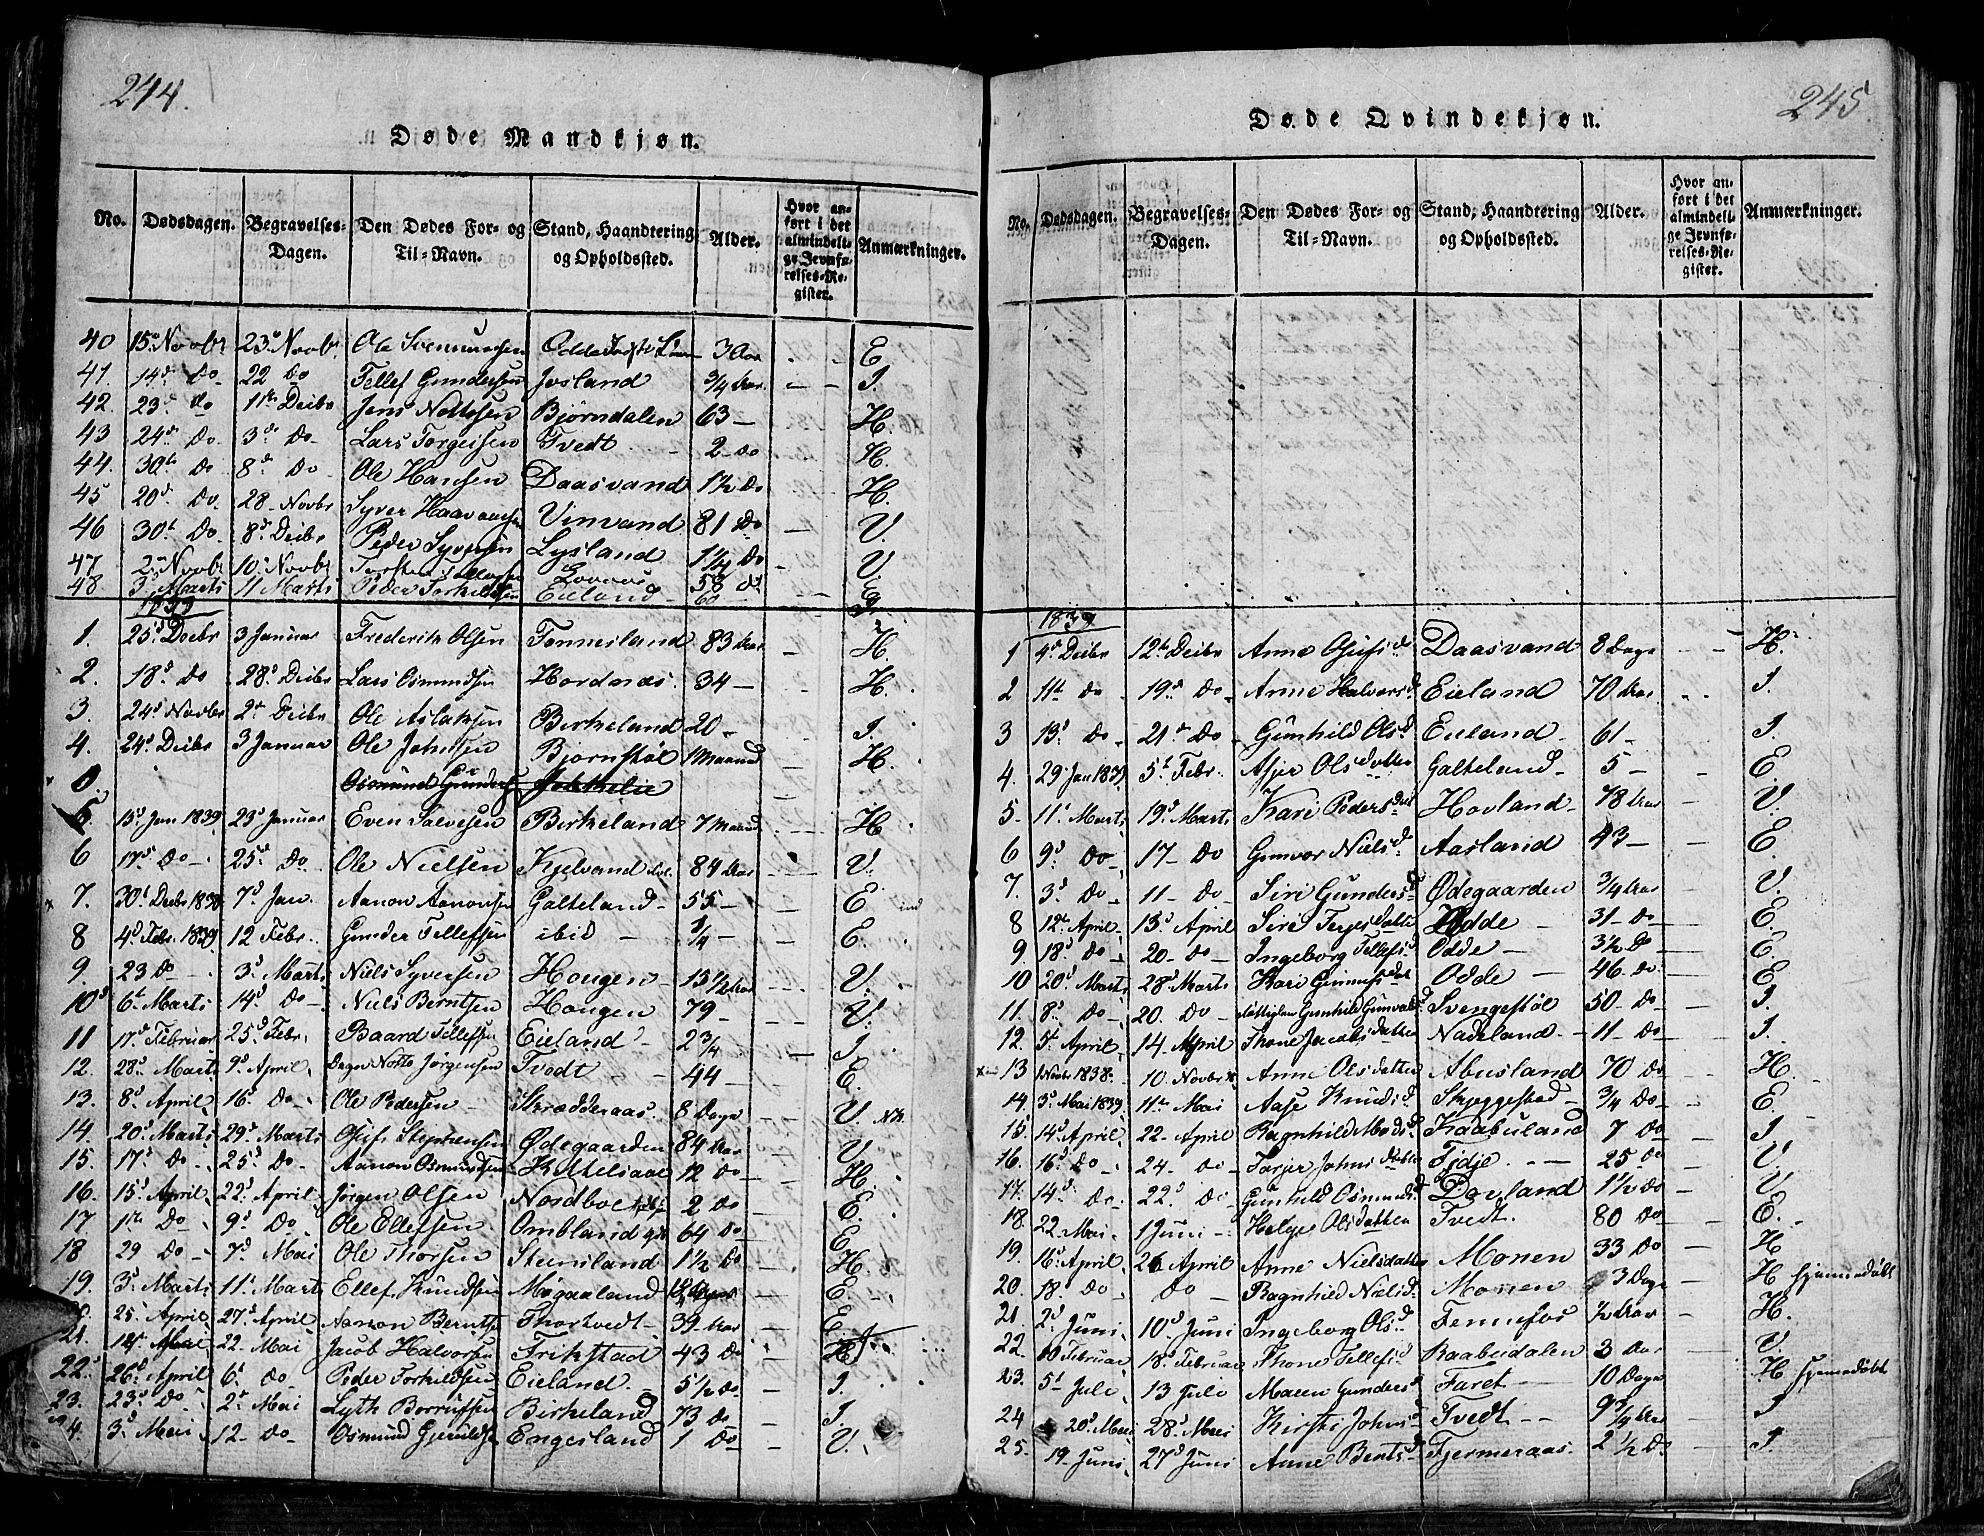 244.
Døde Mandkjøn.
No. Dødsdagen. Begravelses-Dagen. Den Dødes For- og Til-Navn. Stand, Haandtering og Opholdssted. Alder. Hvor anført i det almindelige Jevnførelses-Register. Anmærkninger.
40 15. Novbr 23 Novbr Ole Odde 3 Aar E.
41. 14d Do 22 Do Tellef Gundersen Josland 3/4 Aar I.
42. 23d Do 11te Decbr Jens Nottosen Bjørndalen 63 — H.
43 24d Do 3d Do Lars Torgersen Tvedt 2 Do H.
44. 30te Do 8d Do Ole Hansen Daasvand 1½ Do H.
45 20d Do 28 Novbr Syver Vinvand 81 Do V.
46 30t Do 8d Decbr Peder Syversen Lysland 1¼ Do V.
47 2 Novbr 10 Novbr 58 E
48 3 Marts 11 Marts Peder Torkildsen Eieland 60
1839
1. 25d Decbr 3 Januar Frederik Olsen Tennesland 83 Aar H.
2. 18d Do 28d Decbr Lars Osmundsen Hordnæs 34 — H.
3. 24d Novbr 2te Decbr Ole Aslaksen Birkeland 20 — I.
4. 24d Decbr 3 Januar Ole Johnsen Bjørnstøl 1 Maaned H.
0 Osmund Gunders
5 15d Jan 1839 23d Januar Even Salvesen Birkeland 7 Maaned H
6 17d Do 25d Do Ole Nielsen Kjelvand 84 Aar V.
7. 30t Decbr 1838 7d Jan Aanon Aanonsen Galteland 55 — E
8 4d Febr. 1839 12 Febr. Gunder Tellefsen ibid ¾ E.
9. 23 Do 3d Marts Niels Syversen Hougen 13½ Aar V.
10 6te Marts 14d Do Niels Berntsen Hougen 79 — V.
11 17d Februar 25d Febr. Baard Tellefsen Eieland 2¾ I.
12. 28d Marts 9d April Notto Jørgensen Tvedt 44 — E.
13. 8d April 16d Do Ole Pedersen Skrædderaas 8 Dage V. NB.
14. 20d Marts 29d Marts Stephensen Ødegaarden 84 Aar V.
15. 17d Do 25d Do Aanon Osmundsen 12 Do H.
16. 15d April 22d April Jørgen Olsen Nordboe 2 Do E.
17 1te Do 9d Do Ole Ellefsen Ombland 64 Do E.
18 29 Do 7d Mai Ole Thorsen Steinsland 1½ Do H.
19. 3d Marts 11t Marts Ellef Knudsen E
25 April 27d April Aanon Berntsen Thortvedt 39 Aar E
21. 14 Mai 22 Mai Jacob Halvorsen Frikstad 43 Do
22. 26d April 6t Do Peder Torkildsen Eieland 5½ Do I.
23. 23d Do 2t Mai Lyth Birkeland 73 Do I.
4. 3d Mai 12 Do Osmund Engesland 1 Do V.
245
Døde Qvindekjøn.
No. Dødsdagen. Begravelses-Dagen. Den Dødes For- og Til-Navn. Stand, Haandtering og Opholdssted. Alder. Hvor anført i det almindelige Jevnførelses-Register. Anmærkninger.
1839
1 4d Decbr 12te Decbr Anne Daasvand 8 Dage H.
2 11te Do 19d Do Anne Halvorsd Eieland 70 Aar I.
3 13d Do 21d Do Gunhild Olsd Eieland 61 — I.
4. 29 Jan 1839 5t Febr. Asjer Olsdatter Galteland 5 — E.
5. 11t Marts 19d Marts Kari Pedersdat Hovland 78 Aar V.
6 9d Do 17 Do Gunvor Nielsd Aasland 43 — E.
7. 3d Do 11 Do Siri Gundersd Ødegaarden ¾ Aar V.
8 12te April 13d April Siri Terjesdatter Odde 31 Do E.
9. 18d Do 20 Do Ingeborg Tellefsd Odde 3½ Do E.
10 20d Marts 28d Marts Kari Odde 46 Do E
11. 8d Do 20. Do Gunhild Gunvaldsd Svengestøl 50 Do I
12. 5t April 14 April Thone Jacobsdatter Nadeland 11 Do I.
13 Novbr 1838. 10 Novbr Anne Olsdatter Abusland 70 Do H.
14. 3d Mai 1839 11te Mai Aase Knudsd Skjeggestad ¾ Do E.
15. 14d April 22 April Ragnhild Madsd Kaabuland 7 Do I
16. 16d Do 24 Do Torjer Johnsdatter Fidje 25 Do V.
17. 14d Do 22d Do Gunhild Osmundsd Dovland 1½ Do V.
18. 22 Mai 1 Juni Helje Olsdatter Tvedt 80 Do E.
19. 16d April 26 April Anne Nielsdatter Monen 33 Do H
20. 18. Do Do Ragnhild Nielsd Monen 3 Dage H hjemmedøbt
21. 2d Juni 10d Juni Ingeborg Olsd Fennefos ½ Aar H.
22. 10 Februar 18d Februar Thone Tellefsd Raabudalen 3 Aar V.
23. 5t Juli 13 Juli Maren Gundersd Faret 10 Dage H hjemmedøbt
24 20d Mai 28d Mai Kirsti Johnsd Tvedt 9¾ Aar I
25. 19 Juni 27d Juni Anne Bentsd Fjermeraas 2½ Do I.